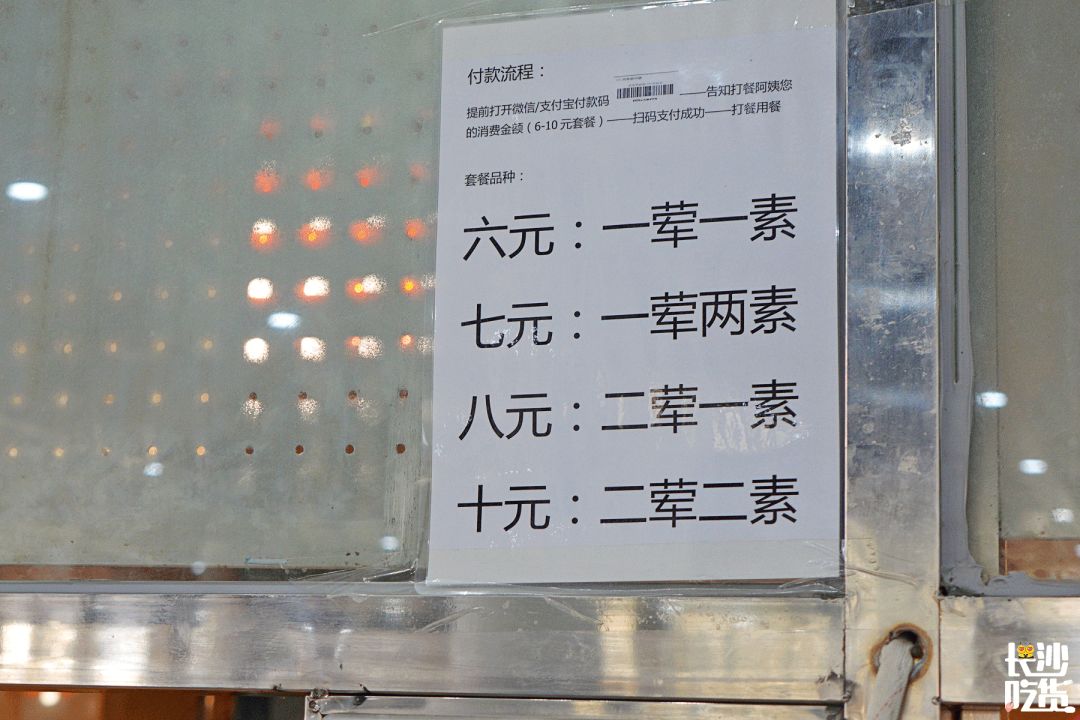 付款流程：
提前打开微信/支付宝付款码 ——告知打餐阿姨您
的消费金额（6-10元套餐）——扫码支付成功——打餐用餐
套餐品种：
六元：一荤一素
七元：一荤两素
八元：二荤一素
十元：二荤二素
长沙
吃货